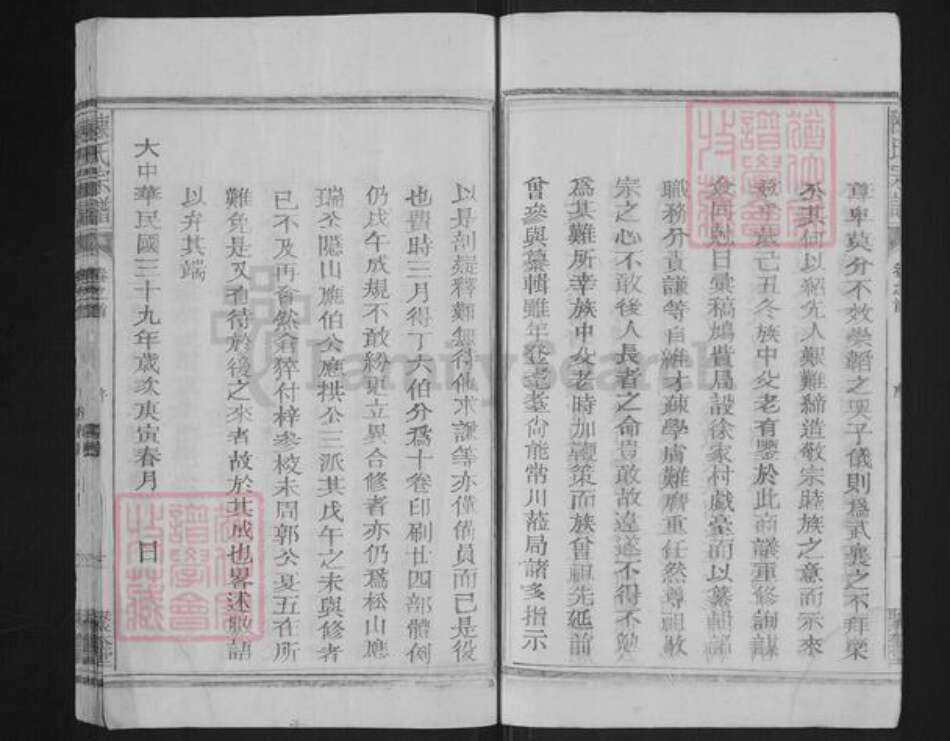 尊卑莫分不效崇韜之哭子儀則為武襄之不拜梁
公其何以紹先人艱難締造敬宗睦族之意而示來
茲乎歲己丑冬族中父老有鑒於此商議重修詢謀
僉同尅日彙稿鳩貲局設徐家村戲臺而以纂輯諸
職務分責謙等自維才疎學膚難膺重任然尊祖敬
宗之心不敢後人長者之命豈敢故違遂不得不勉
為其難所幸族中父老時加鞭策而族曾祖先延前
曾參與纂輯雖年登耄耋尚能常川蒞局諸多指示
以是剖疑釋難無待他求謙等亦僅備員而已是役
也費時三月得丁六伯分為十卷印刷廿四部體例
仍戊午成規不敢紛更立異合修者亦仍為松山應
瑞公隱山應伯公應拱公三派其戊午之未與修者
已不及再會然倉猝付梓參校未周郭公夏五在所
難免是又有待於後之來者故於其成也畧述數語
以弁其端
大中華民國三十九年歲次庚寅春月 日
陳氏宗譜
卷之首
序
FamilySearch